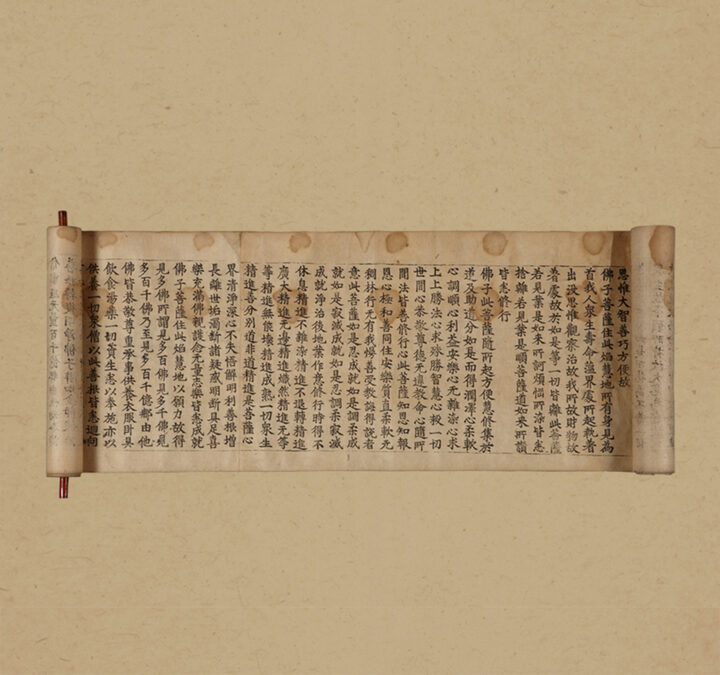 思惟大智善巧方便故
佛子菩薩住此焰慧地所有身見為
首我人衆生壽命蘊界處所起執著
出沒思惟觀察治故我所故財物故
著處故於如是等一切皆離此菩薩
若見業是如來所訶煩惱所染皆悉
捨離若見業是順菩薩道如來所讚
皆悉修行
佛子此菩薩隨所起方便慧修集於
道及助道分如是而得潤澤心柔軟
心調順心利益安樂心无雜染心求
上上勝法心求殊勝智慧心救一切
世間心恭敬尊德无違教命心隨所
聞法皆善修行心此菩薩知恩知報
恩心極和善同住安樂質直柔軟无
稠林行无有我慢善受教誨得說者
意此菩薩如是忍成就如是調柔成
就如是寂滅成就如是忍調柔寂滅
成就淨治後地業作意修行時得不
休息精進不雜染精進不退轉精進
廣大精進无邊精進熾然精進无等
等精進無能壞精進成熟一切衆生
精進善分別道非道精進是菩薩心
界清淨深心不失悟解明利善根增
長離世垢濁斷諸疑惑明斷具足喜
樂充滿佛親護念无量志樂皆悉成就
佛子菩薩住此焰慧地以願力故得
見多佛所謂見多百佛見多千佛見
多百千佛乃至見多百千億那由他
佛皆恭敬尊重承事供養衣服臥具
飲食湯藥一切資生悉以奉施亦以
供養一切衆僧以此善根皆悉迴向